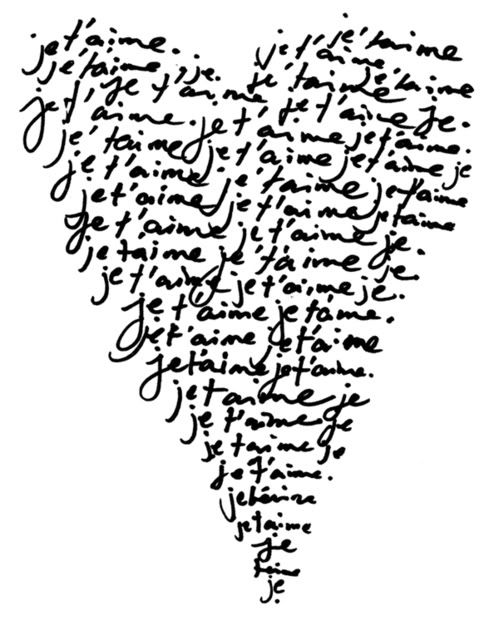 je t'aime. je t'aime
je t'aime, je. je t'aime, je t'aime
je t'aime je t'aime
je t'aime. je t'aime je.
je t'aime je t'aime je t'aime.
je t'aime je t'aime je t'aime je
je t'aime je t'aime je t'aime
je t'aime je t'aime je t'aime
je t'aime je t'aime je.
je t'aime je t'aime je.
je t'aime je t'aime je.
je t'aime je t'aime.
je t'aime je t'aime
je t'aime je t'aime.
je t'aime je
je t'aime je
je t'aime je
je t'aime.
je
je t'aime
je
t'aime
je.